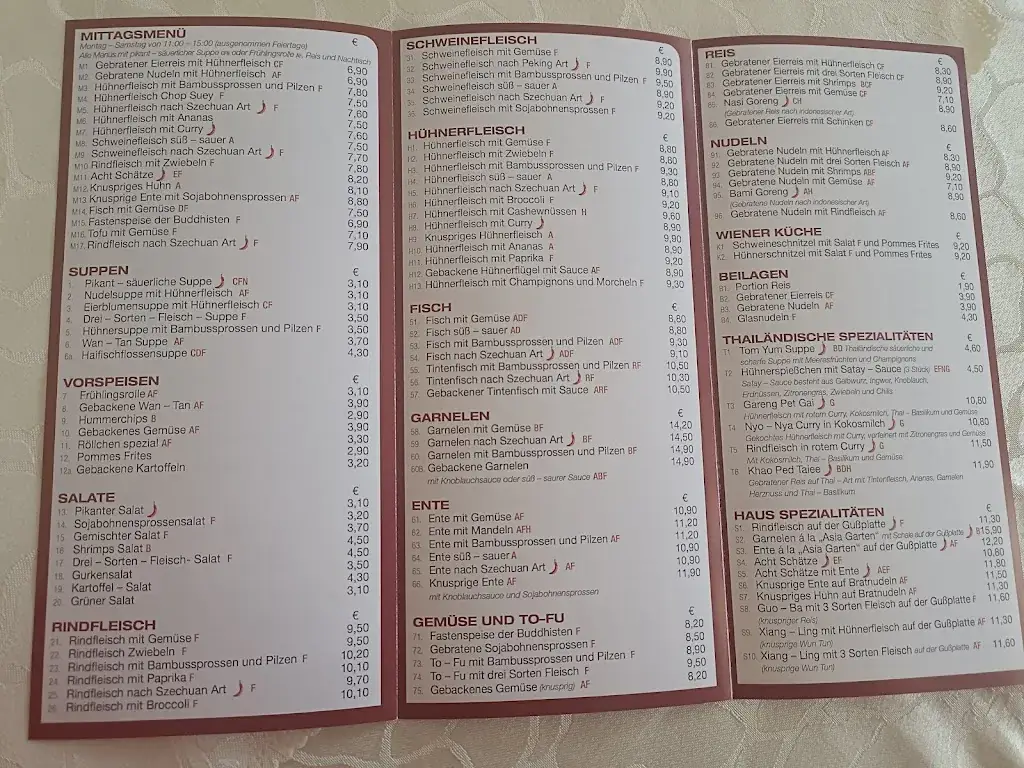 MITTAGSMENÜ €
Montag – Samstag von 11:00 – 15:00 (ausgenommen Feiertage)
Alle Menüs mit pikant – säuerlicher Suppe cfn oder Frühlingsrolle af, Reis und Nachtisch
M1. Gebratener Eierreis mit Hühnerfleisch CF 6,90
M2. Gebratene Nudeln mit Hühnerfleisch AF 6,90
M3. Hühnerfleisch mit Bambussprossen und Pilzen F 7,80
M4. Hühnerfleisch Chop Suey F 7,50
M5. Hühnerfleisch nach Szechuan Art F 7,60
M6. Hühnerfleisch mit Ananas 7,50
M7. Hühnerfleisch mit Curry 7,60
M8. Schweinefleisch süß – sauer A 7,50
M9. Schweinefleisch nach Szechuan Art F 7,70
M10. Rindfleisch mit Zwiebeln F 7,80
M11. Acht Schätze EF 8,20
M12. Knuspriges Huhn A 8,10
M13. Knusprige Ente mit Sojabohnensprossen AF 8,80
M14. Fisch mit Gemüse DF 7,50
M15. Fastenspeise der Buddhisten F 6,90
M16. Tofu mit Gemüse F 7,10
M17. Rindfleisch nach Szechuan Art F 7,90
SUPPEN €
1. Pikant – säuerliche Suppe CFN 3,10
2. Nudelsuppe mit Hühnerfleisch AF 3,10
3. Eierblumensuppe mit Hühnerfleisch CF 3,10
4. Drei – Sorten – Fleisch – Suppe F 3,50
5. Hühnersuppe mit Bambussprossen und Pilzen F 3,50
6. Wan – Tan Suppe AF 3,70
6a. Haifischflossensuppe CDF 4,30
VORSPEISEN €
7. Frühlingsrolle AF 3,10
8. Gebackene Wan – Tan AF 3,90
9. Hummerchips B 2,90
10. Gebackenes Gemüse AF 3,90
11. Röllchen spezial AF 3,30
12. Pommes Frites 2,90
12a. Gebackene Kartoffeln 3,20
SALATE €
13. Pikanter Salat 3,10
14. Sojabohnensprossensalat F 3,20
15. Gemischter Salat F 3,70
16. Shrimps Salat B 4,50
17. Drei – Sorten – Fleisch- Salat F 4,50
18. Gurkensalat 3,50
19. Kartoffel – Salat 4,30
20. Grüner Salat 3,10
RINDFLEISCH €
21. Rindfleisch mit Gemüse F 9,50
22. Rindfleisch Zwiebeln F 9,50
23. Rindfleisch mit Bambussprossen und Pilzen F 10,20
24. Rindfleisch mit Paprika F 10,10
25. Rindfleisch nach Szechuan Art F 9,70
26. Rindfleisch mit Broccoli F 10,10
SCHWEINEFLEISCH €
31. Schweinefleisch mit Gemüse F 8,90
32. Schweinefleisch nach Peking Art F 9,90
33. Schweinefleisch mit Bambussprossen und Pilzen F 9,50
34. Schweinefleisch süß – sauer A 8,90
35. Schweinefleisch nach Szechuan Art F 9,20
36. Schweinefleisch mit Sojabohnensprossen F 9,20
HÜHNERFLEISCH €
H1. Hühnerfleisch mit Gemüse F 8,80
H2. Hühnerfleisch mit Zwiebeln F 8,80
H3. Hühnerfleisch mit Bambussprossen und Pilzen F 9,30
H4. Hühnerfleisch süß – sauer A 8,80
H5. Hühnerfleisch nach Szechuan Art F 9,10
H6. Hühnerfleisch mit Broccoli F 9,20
H7. Hühnerfleisch mit Cashewnüssen H 9,60
H8. Hühnerfleisch mit Curry 8,90
H9. Knuspriges Hühnerfleisch A 9,90
H10. Hühnerfleisch mit Ananas A 8,90
H11. Hühnerfleisch mit Paprika F 9,20
H12. Gebackene Hühnerflügel mit Sauce AF 8,90
H13. Hühnerfleisch mit Champignons und Morcheln F 9,30
FISCH €
51. Fisch mit Gemüse ADF 8,80
52. Fisch süß – sauer AD 8,80
53. Fisch mit Bambussprossen und Pilzen ADF 9,30
54. Fisch nach Szechuan Art ADF 9,10
55. Tintenfisch mit Bambussprossen und Pilzen RF 10,50
56. Tintenfisch nach Szechuan Art RF 10,30
57. Gebackener Tintenfisch mit Sauce ARF 10,50
GARNELEN €
58. Garnelen mit Gemüse BF 14,20
59. Garnelen nach Szechuan Art BF 14,50
60. Garnelen mit Bambussprossen und Pilzen BF 14,90
60B. Gebackene Garnelen 14,90
mit Knoblauchsauce oder süß – saurer Sauce ABF
ENTE €
61. Ente mit Gemüse AF 10,90
62. Ente mit Mandeln AFH 11,20
63. Ente mit Bambussprossen und Pilzen AF 11,20
64. Ente süß – sauer A 10,90
65. Ente nach Szechuan Art AF 10,90
66. Knusprige Ente AF 11,90
mit Knoblauchsauce und Sojabohnensprossen
GEMÜSE UND TO-FU €
71. Fastenspeise der Buddhisten F 8,20
72. Gebratene Sojabohnensprossen F 8,50
73. To – Fu mit Bambussprossen und Pilzen F 8,90
74. To – Fu mit drei Sorten Fleisch F 9,50
75. Gebackenes Gemüse (knusprig) AF 8,20
REIS €
81. Gebratener Eierreis mit Hühnerfleisch CF 8,30
82. Gebratener Eierreis mit drei Sorten Fleisch CF 8,90
83. Gebratener Eierreis mit Shrimps BCF 9,20
84. Gebratener Eierreis mit Gemüse CF 7,10
85. Nasi Goreng CH 8,90
(Gebratener Reis nach indonesischer Art)
86. Gebratener Eierreis mit Schinken CF 8,60
NUDELN €
91. Gebratene Nudeln mit Hühnerfleisch AF 8,30
92. Gebratene Nudeln mit drei Sorten Fleisch AF 8,90
93. Gebratene Nudeln mit Shrimps ABF 9,20
94. Gebratene Nudeln mit Gemüse AF 7,10
95. Bami Goreng AH 8,90
(Gebratene Nudeln nach indonesischer Art)
96. Gebratene Nudeln mit Rindfleisch AF 8,60
WIENER KÜCHE €
K1. Schweineschnitzel mit Salat F und Pommes Frites 9,20
K2. Hühnerschnitzel mit Salat F und Pommes Frites 9,20
BEILAGEN €
B1. Portion Reis 1,90
B2. Gebratener Eierreis CF 3,90
B3. Gebratene Nudeln AF 3,90
B4. Glasnudeln F 4,30
THAILÄNDISCHE SPEZIALITÄTEN €
T1. Tom Yum Suppe BD Thailändische säuerliche und 4,60
scharfe Suppe mit Meeresfrüchten und Champignons
T2. Hühnerspießchen mit Satay – Sauce (3 Stück) EFNG 4,50
Satay – Sauce besteht aus Gelbwurz, Ingwer, Knoblauch,
Erdnüssen, Zitronengras, Zwiebeln und Chilis
T3. Gareng Pet Gai G 10,80
Hühnerfleisch mit rotem Curry, Kokosmilch, Thai – Basilikum und Gemüse
T4. Nyo – Nya Curry in Kokosmilch G 10,80
Gekochtes Hühnerfleisch mit Curry, verfeinert mit Zitronengras und Gemüse
T5. Rindfleisch in rotem Curry G 11,50
Mit Kokosmilch, Thai – Basilikum und Gemüse
T6. Khao Ped Talee BDH 11,90
Gebratener Reis auf Thai – Art mit Tintenfleisch, Ananas, Garnelen
Herznuss und Thai – Basilikum
HAUS SPEZIALITÄTEN €
S1. Rindfleisch auf der Gußplatte F 11,30
S2. Garnelen á la „Asia Garten" mit Schale auf der Gußplatte B 15,90
S3. Ente á la „Asia Garten" auf der Gußplatte AF 12,20
S4. Acht Schätze EF 10,80
S5. Acht Schätze mit Ente AEF 11,80
S6. Knusprige Ente auf Bratnudeln AF 11,50
S7. Knuspriges Huhn auf Bratnudeln AF 11,30
S8. Guo – Ba mit 3 Sorten Fleisch auf der Gußplatte F 11,60
(knuspriger Reis)
S9. Xiang – Ling mit Hühnerfleisch auf der Gußplatte AF 11,30
(knusprige Wun Tun)
S10. Xiang – Ling mit 3 Sorten Fleisch auf der Gußplatte AF 11,60
(knusprige Wun Tun)